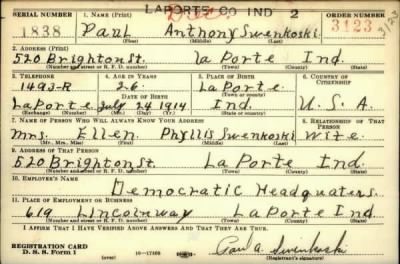 LAPORTE CO IND 2
SERIAL NUMBER 1. NAME (Print) ORDER NUMBER
1838 Paul Anthony Swenkoski 3123
(First) (Middle) (Last)
2. ADDRESS (Print)
520 Brighton St. La Porte Ind.
(Number and street or R. F. D. number) (Town) (County) (State)
3. TELEPHONE 4. AGE IN YEARS 5. PLACE OF BIRTH 6. COUNTRY OF CITIZENSHIP
1493-R 26. La Porte
DATE OF BIRTH (Town or county)
LaPorte July 24 1914 Ind. U. S. A
(Exchange) (Number) (Mo.) (Day) (Yr.) (State or country)
7. NAME OF PERSON WHO WILL ALWAYS KNOW YOUR ADDRESS 8. RELATIONSHIP OF THAT PERSON
Mrs. Ellen Phyllis Swenkoski Wife
(Mr., Mrs., Miss) (First) (Middle) (Last)
9. ADDRESS OF THAT PERSON
520 Brighton St. La Porte Ind.
(Number and street or R. F. D. number) (Town) (County) (State)
10. EMPLOYER'S NAME
Democratic Headquaters
11. PLACE OF EMPLOYMENT OR BUSINESS
619 Lincolnway LaPorte Ind
(Number and street or R. F. D. number) (Town) (County) (State)
I AFFIRM THAT I HAVE VERIFIED ABOVE ANSWERS AND THAT THEY ARE TRUE.
REGISTRATION CARD
D. S. S. Form 1 Paul A. Swenkoski
(over) (Registrant's signature)